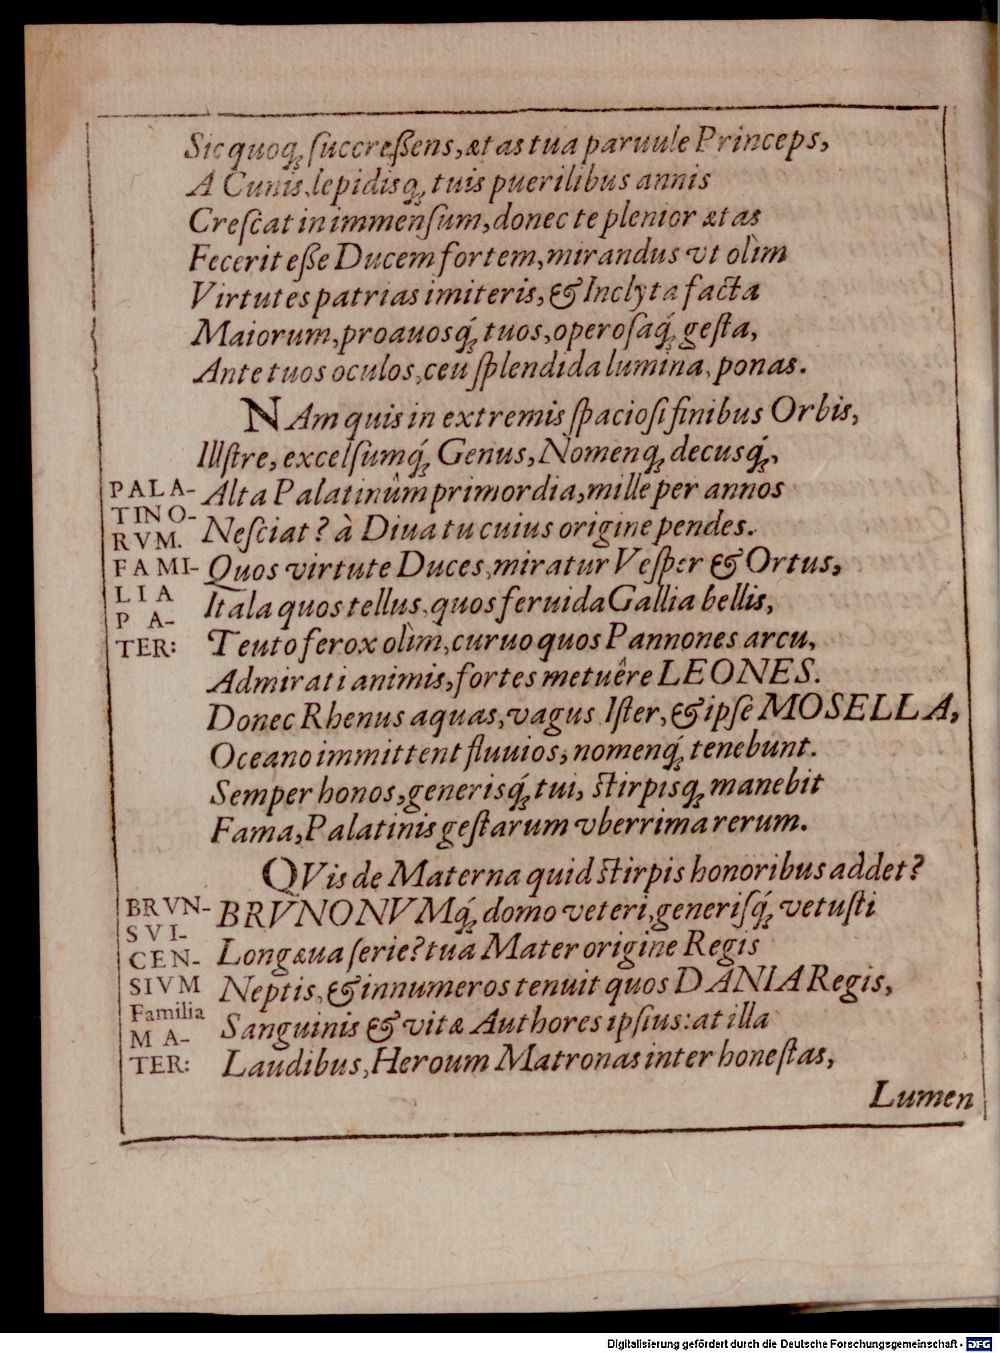 Sic quoq; ſuccreßens, ætas tua paruule Princeps,
A Cunis, lepidisq; tuis puerilibus annis
Creſcat in immenſum, donec te plenior ætas
Fecerit eße Ducem fortem, mirandus vt olìm
Virtutes patrias imiteris, & Inclyta facta
Maiorum, proauosq́; tuos, operoſaq́; geſta,
Ante tuos oculos, ceu ſplendida lumina, ponas.
NAm quis in extremis ſpacioſi finibus Orbis,
Illſtre, excelſumq́; Genus, Nomenq; decusq́;,
Alta Palatinûm primordia, mille per annos
Neſciat? à Diua tu cuius origine pendes.
Quos virtute Duces, miratur Veſper & Ortus,
Itala quos tellus, quos feruida Gallia bellis,
Teuto ferox olìm, curuo quos Pannones arcu,
Admirati animis, fortes metuêre LEONES.
Donec Rhenus aquas, vagus Iſter, & ipſe MOSELLA,
Oceano immittent fluuios, nomenq́; tenebunt.
Semper honos, generisq́; tui, ſtirpisq; manebit
Fama, Palatinis geſtarum vberrima rerum.
QVis de Materna quid ſtirpis honoribus addet?
BRVNONVMq́; domo veteri, generiſq́; vetuſti
Longæua ſerie? tua Mater origine Regis
Neptis, & innumeros tenuit quos DANIA Regis,
Sanguinis & vitæ Authores ipſius: at illa
Laudibus, Heroum Matronas inter honeſtas,
Lumen
PALA-
TINO-
RVM.
FAMI-
LIA
PA-
TER:
BRVN-
SVI-
CEN-
SIVM
Familia
MA-
TER:
Digitalisierung gefördert durch die Deutsche Forschungsgemeinschaft - DFG